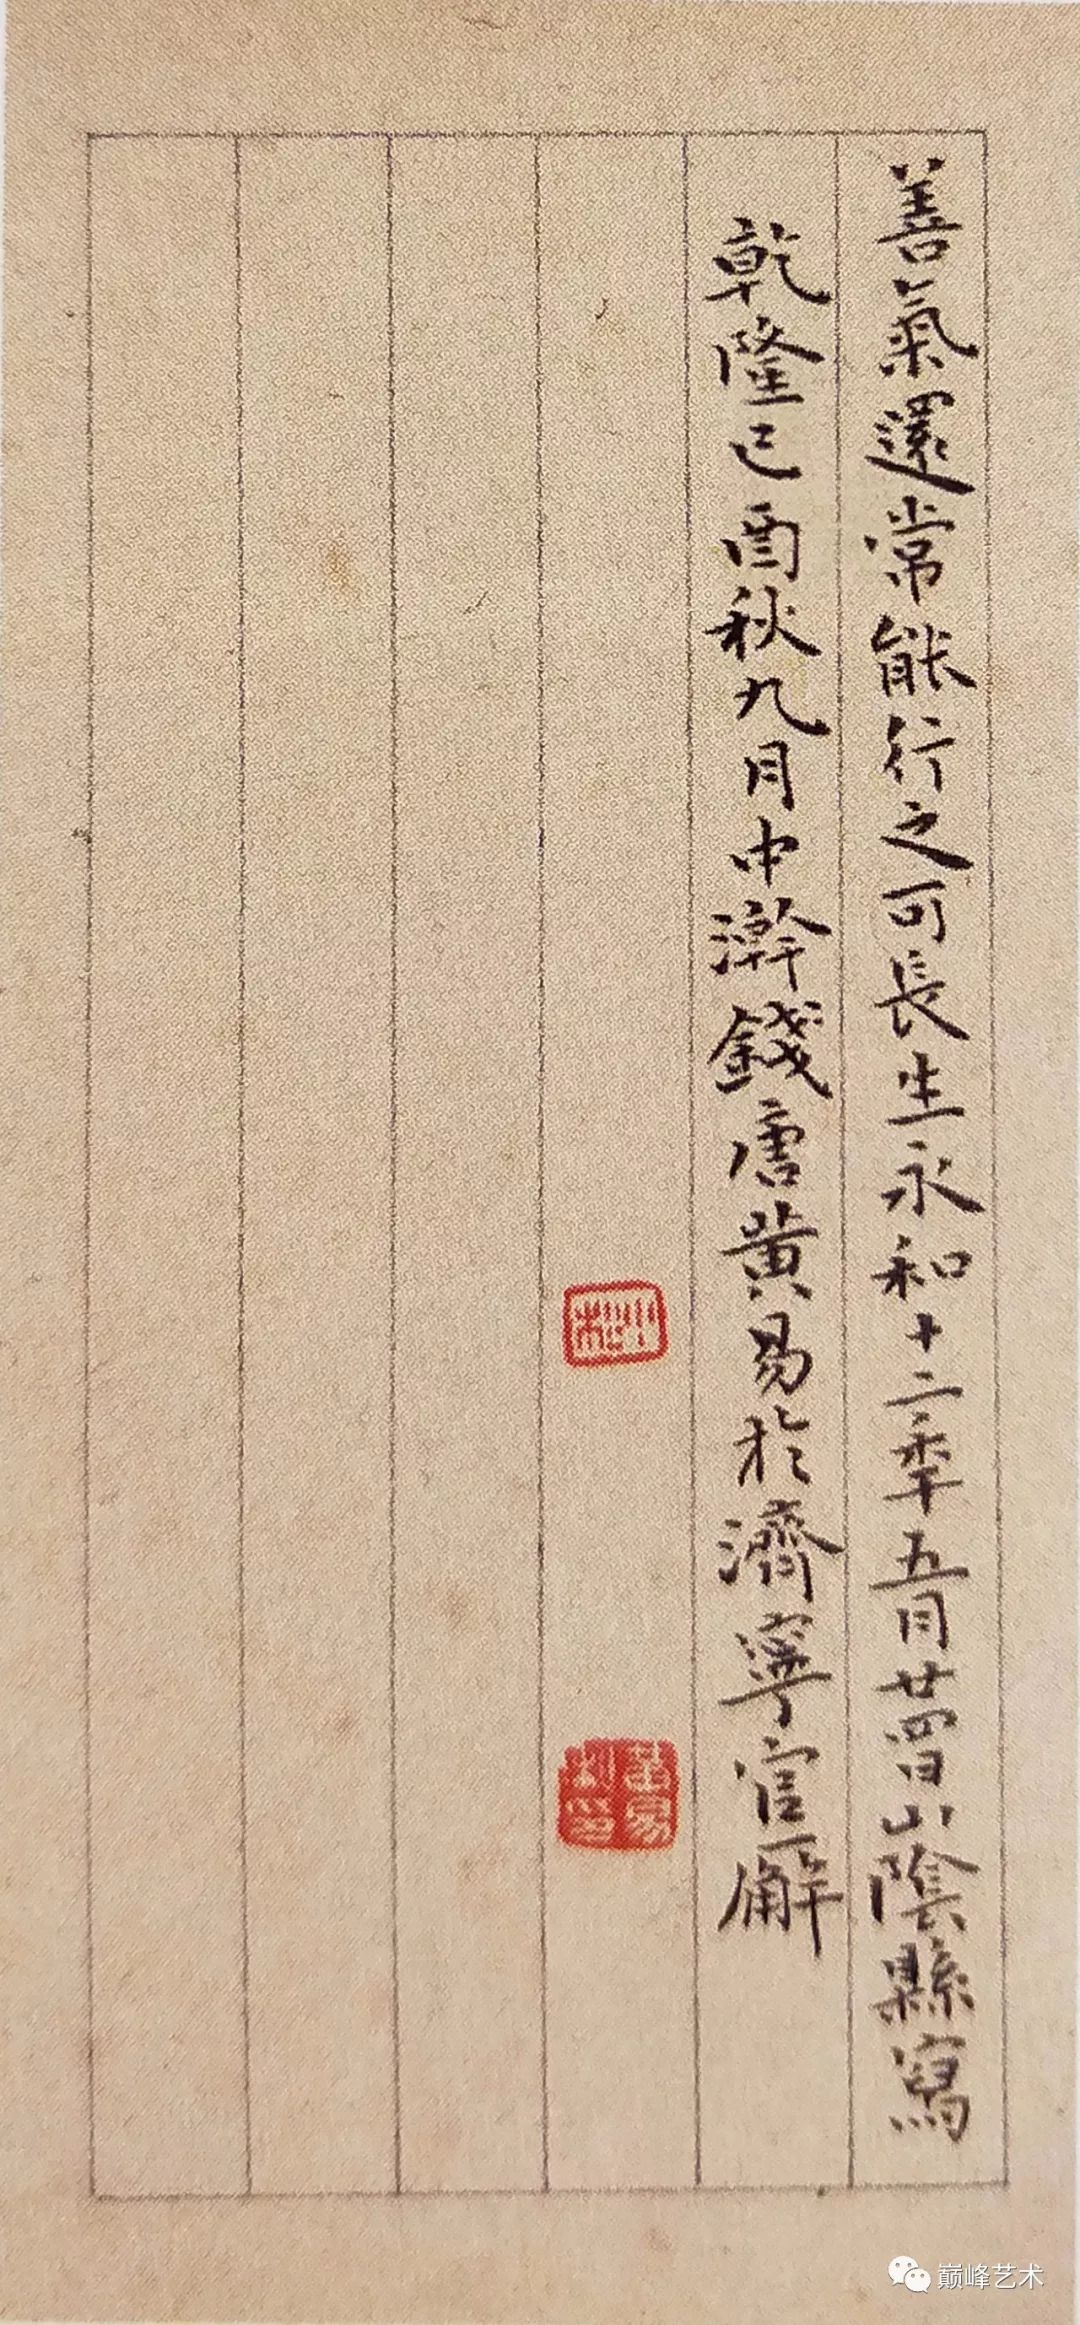 善氣還常能行之可長生永和十二秊五月廿四日山陰縣寫
乾隆己酉秋九月中澣錢唐黃易於濟寧官廨
小松
黃易私印
巅峰艺术